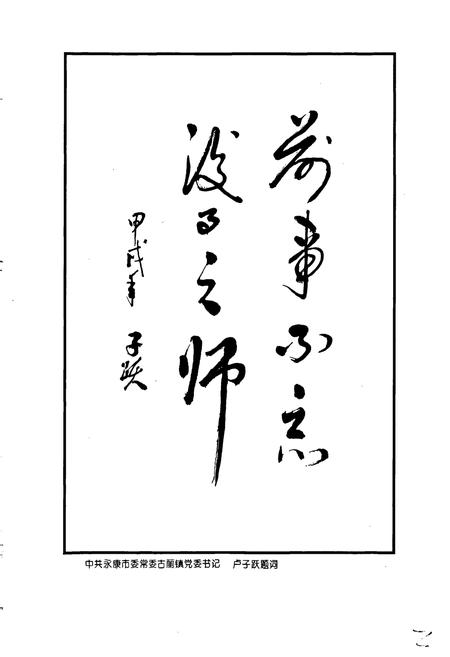 前事不忘
后事之师
甲戌年 子跃
中共永康市委常委古丽镇党委书记 卢子跃题词